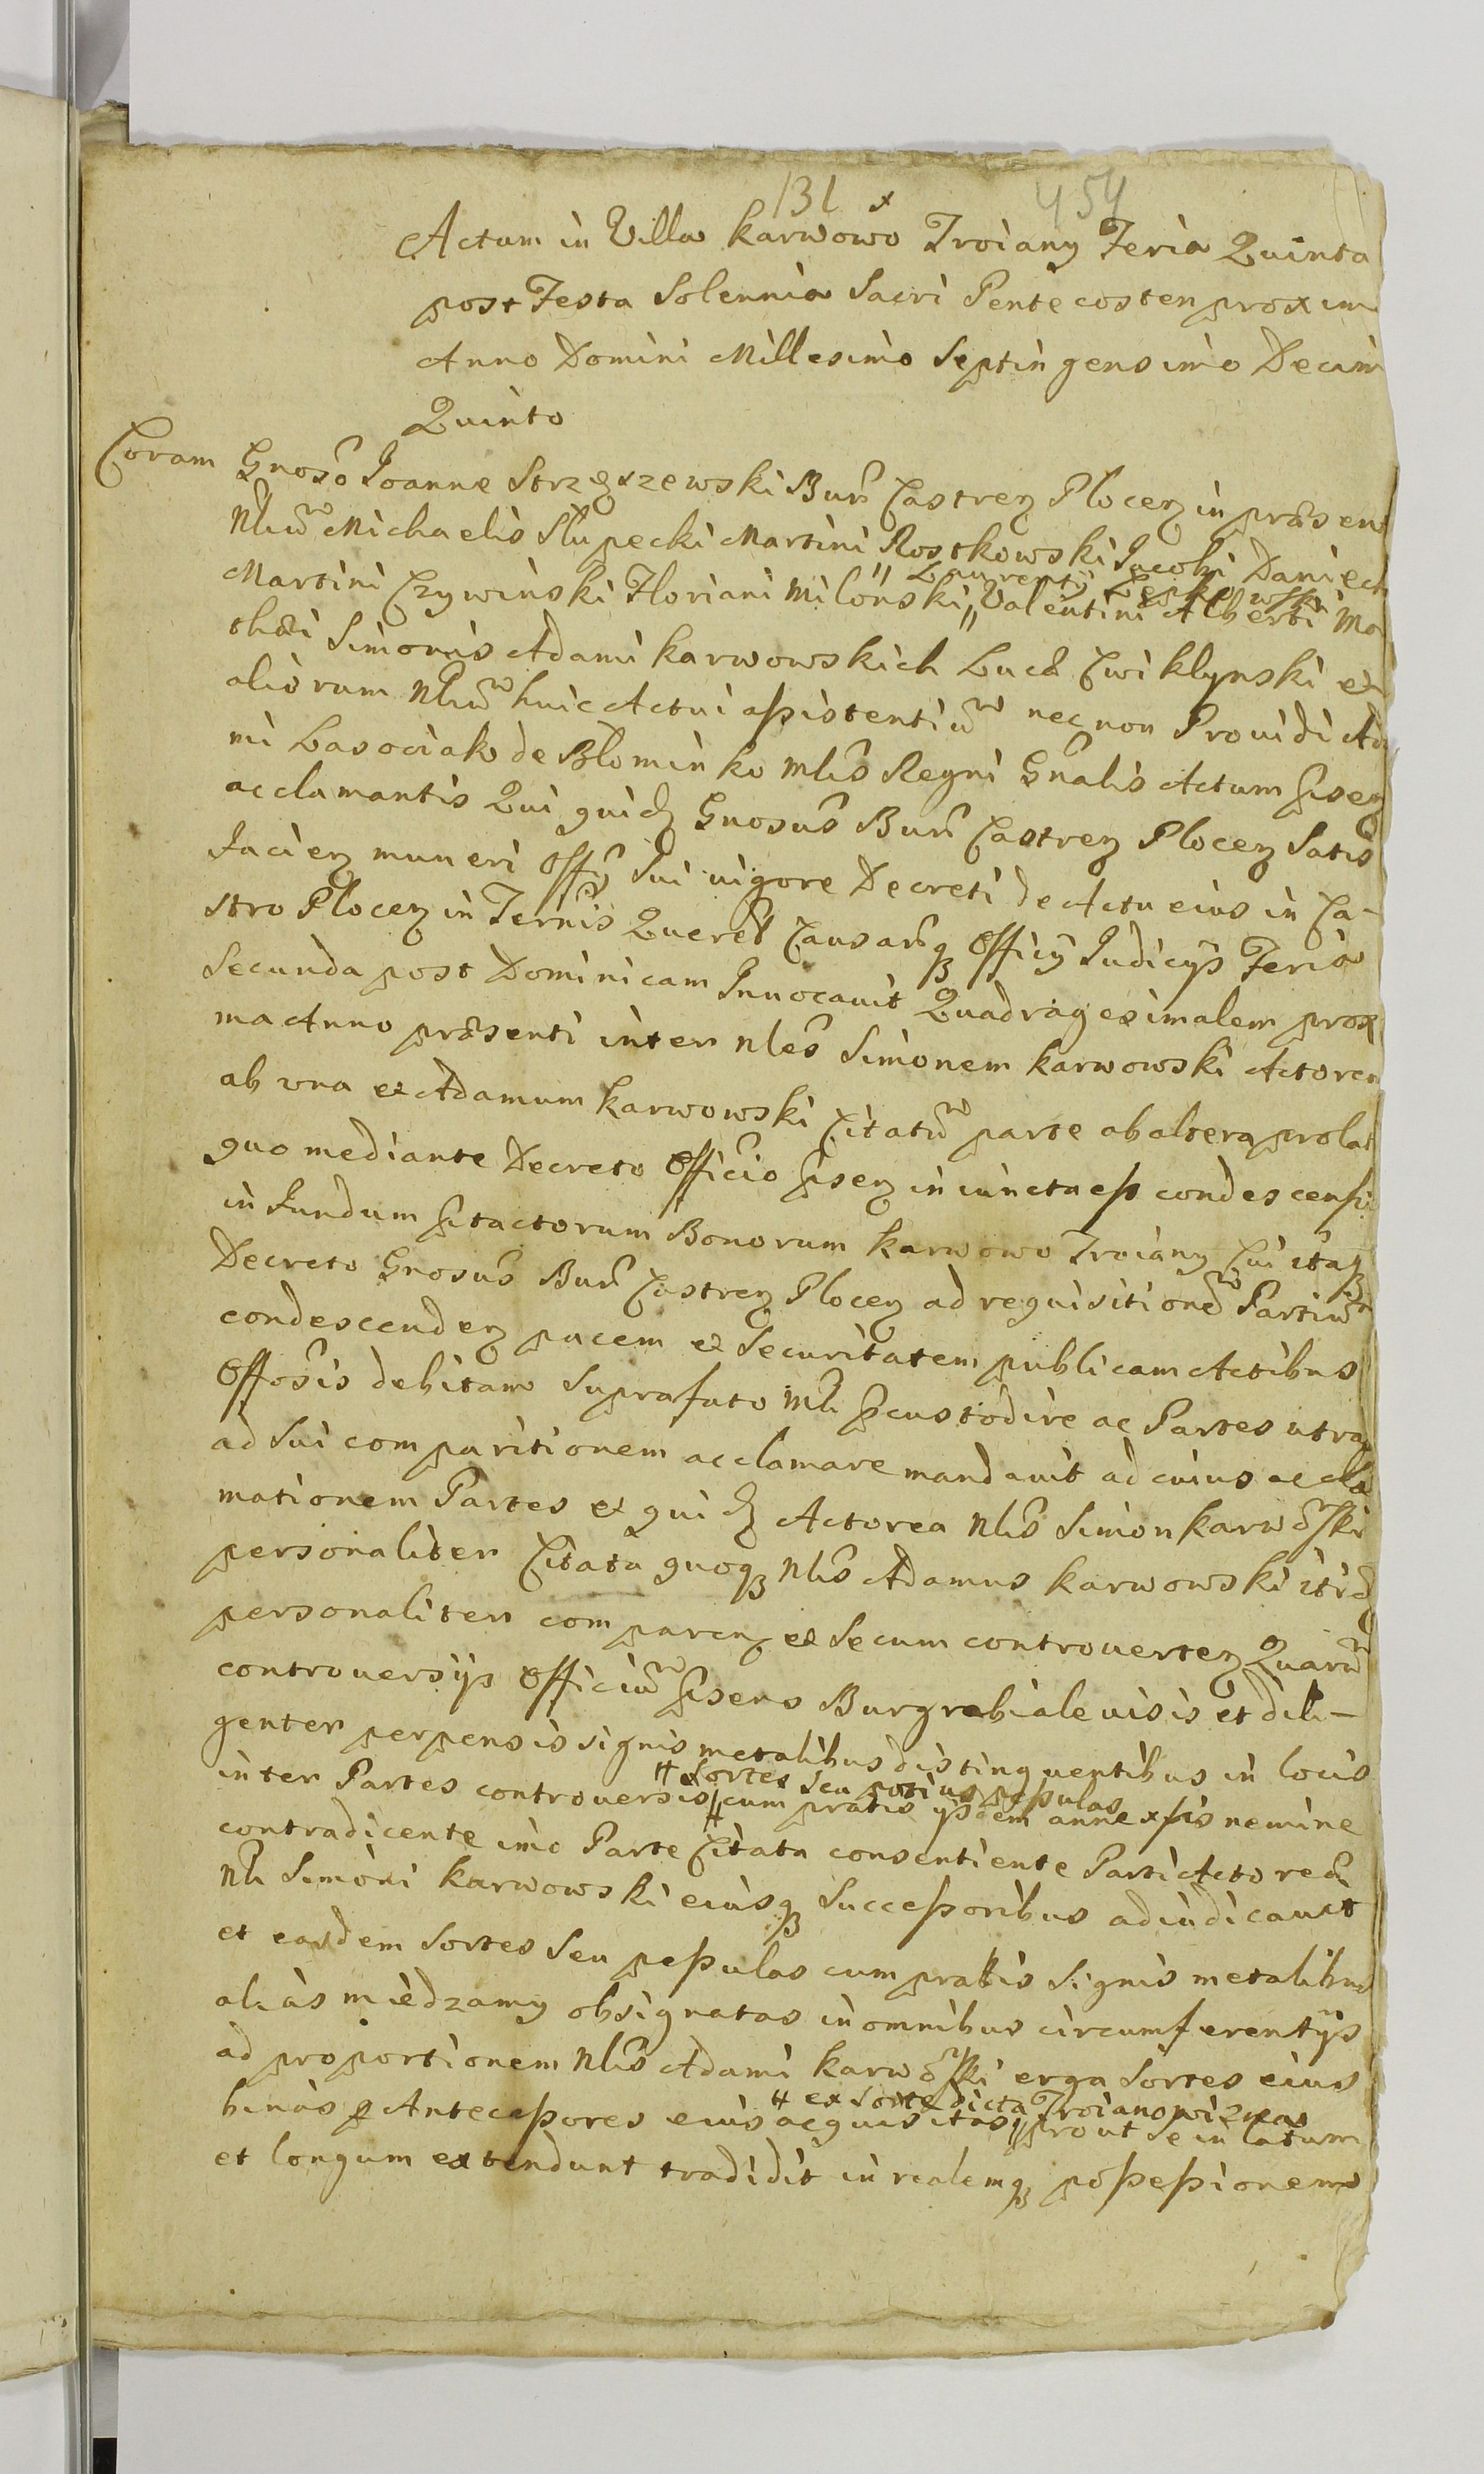 131 x 454
Actum in Villa Karwowo Troiany Feria Quinta
post Festa Solennia Sacri Pentecosten proxim
Anno Domini Millesimo Septingensimo Decim
Quinto
Coram Gnoso Joanne Strzeszewski Bur Castren Plocen in præsen
Nliu Michaelis Słupecki Martini Rostkowski Jacobi Daniech
" Laurentij
Martini Czywinski Floriani Milonski " Valentini Alberti Ma
thæi Simonis Adami Karwowskich Lucæ Cwiklynski et
aliorum Nliu huic Actui assistentiu nec non Prouidi Ada
mi Lasociak de Blominko Mlis Regni Gnalis Actum psen
acclamantis Qui quid Gnosus Bur Castren Plocen Satis
facien muneri Offy Sui uigore Decreti de Actu eius in Ca-
stro Plocen in Ternis Querel Causarq Officij Judicijs Feria
Secunda post Dominicam Inuocauit Quadragesimalem prox
ma Anno præsenti inter Nles Simonem Karwowski Actorem
ab una et Adamum Karwowski Citatu parte ab altera prolat
quo mediante Decreto Officio psen iniuncta est condescensi
in fundum ptactorum Bonorum Karwowo Troiany Cui itaq
Decreto Gnosus Bur Castren Plocen ad requisitione Partiu
condescenden pacem et Securitatem publicam Actibus
Offosis debitam Suprafato Mli pcustodire ac Partes utra
ad Sui comparitionem acclamare mandauit ad cuius accla
mationem Partes et quid Actorea Nlis Simon Karwoski
personaliter Citata quoq Nlis Adamus Karwowski itid
personaliter comparen et Secum controuerten Quaru
controuersijs Officiu psens Burgrabiale uisis et dili-
genter perpensis signis metalibus distinguentibus in locis
# Sortes Seu potius pessulas
inter Partes controuersis # cum pratis ijsdem annexsis nemine
contradicente imo Parte Citata consentiente Parti Actoreæ
Nli Simoni Karwowski eiusq Successoribus adiudicauit
et easdem Sortes Seu pessulas cum pratis Signis metalibus
alias miedzamy obsignatas in omnibus circumferentijs
ad proportionem Nlis Adami Karwoski erga Sortes eius
# ex Sorte dicta Troianowizna
binas p Antecessores eius acquisitas # prout Se in latum
et longum extendunt tradidit in realemq possessionem